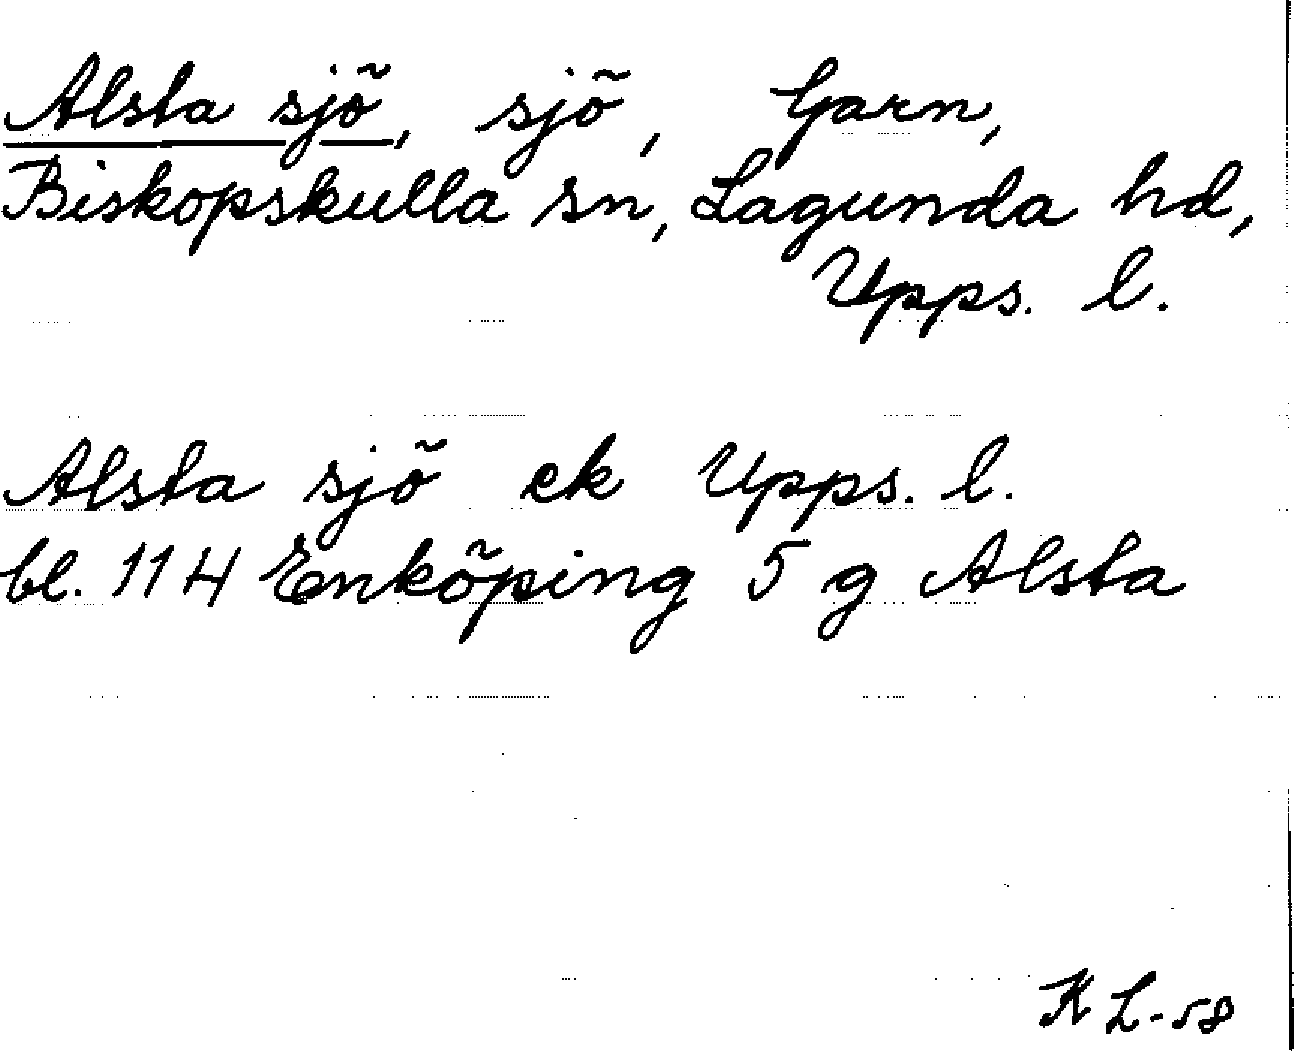 Alsta sjö, sjö, Garn,
Biskopskulla sn, Lagunda hd,
Upps. l.
Alsta sjö ek Upps. l.
bl. 114 Enköping 5 g Alsta
KL-58